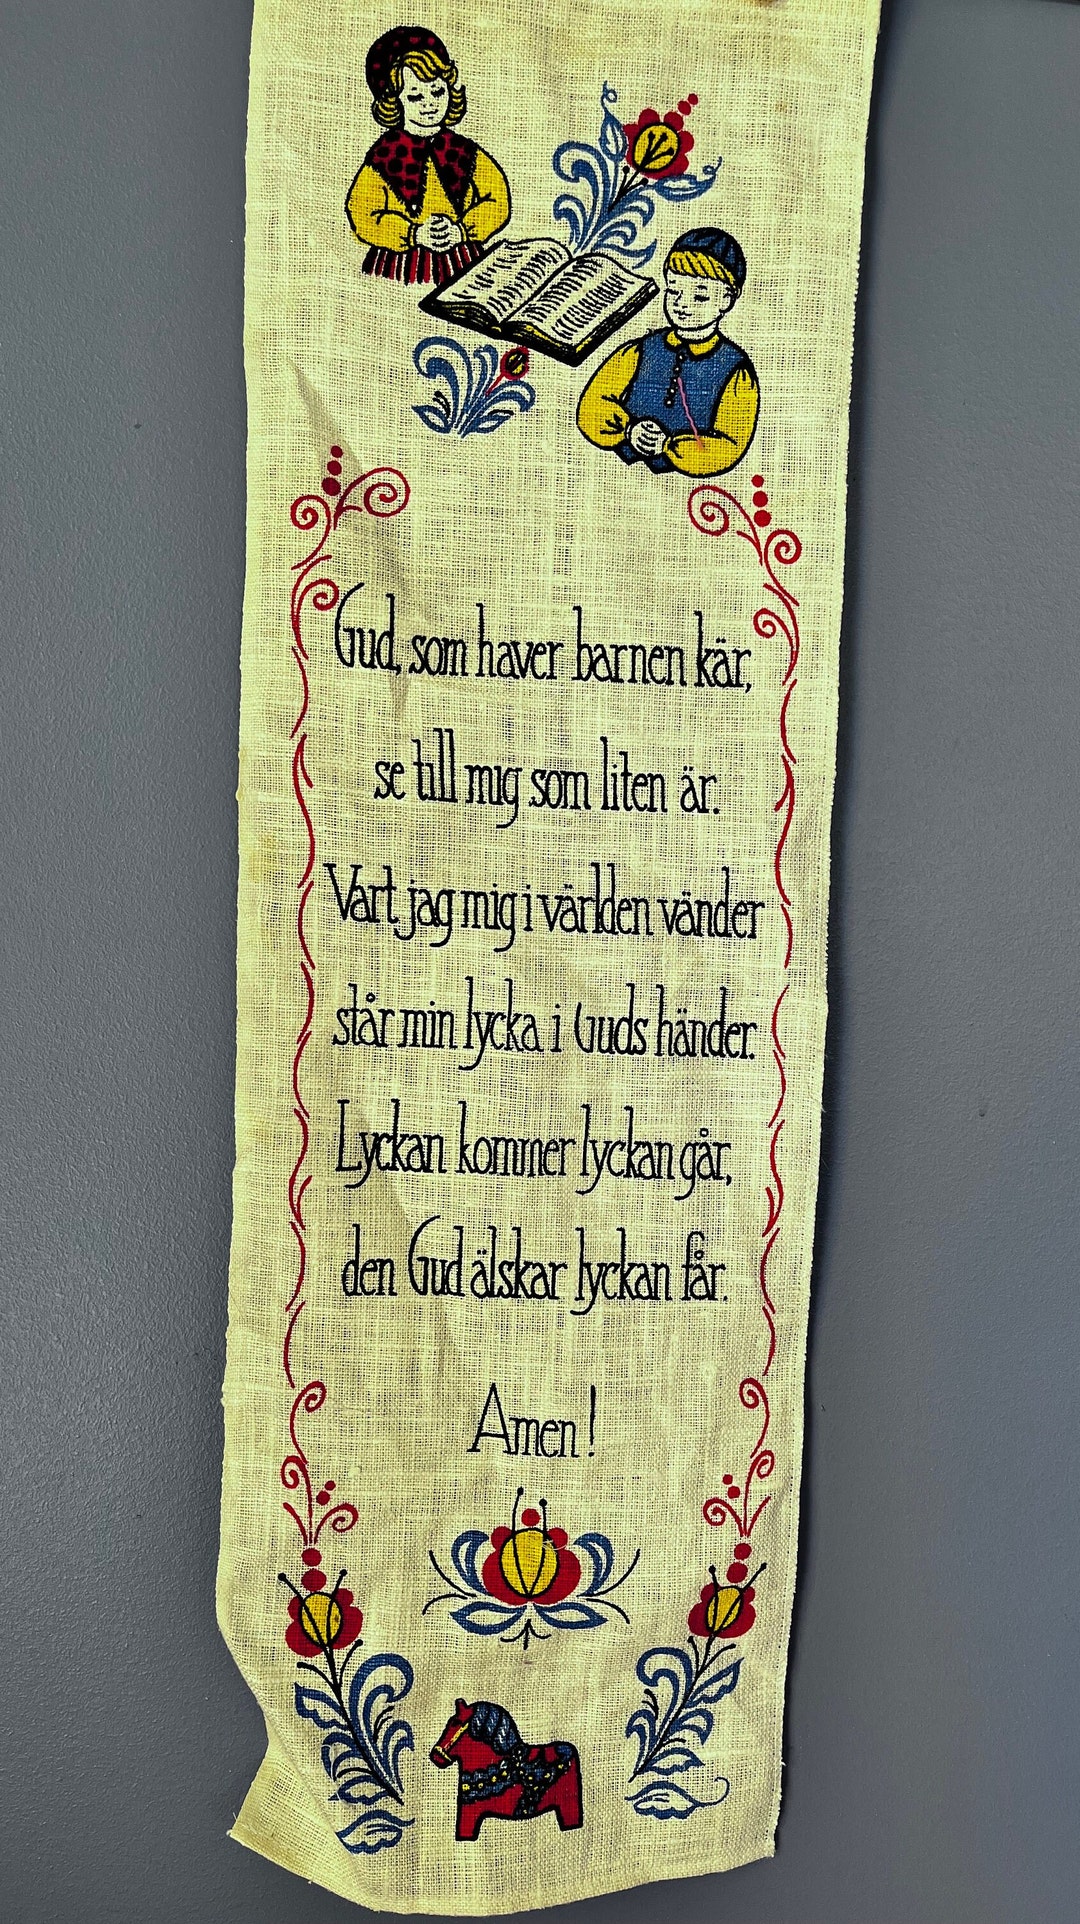 Gud, som haver barnen kär,
se till mig som liten är.
Vart jag mig i världen vänder
står min lycka i Guds händer.
Lyckan kommer lyckan går,
den Gud älskar lyckan får.
Amen!